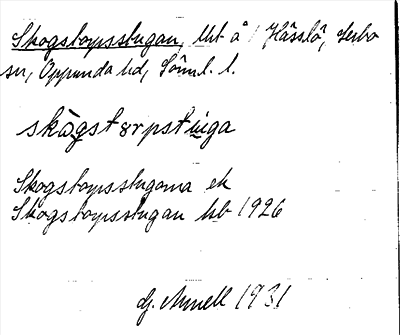 Skogstorpsstugan, lht å Hässlö, Lerbo
sn, Oppunda hd, Söml. l.
skògstorpstuga
Skogstorpsstugorna ek
Skogstorpsstugan hb 1926
Gj. Annell 1931